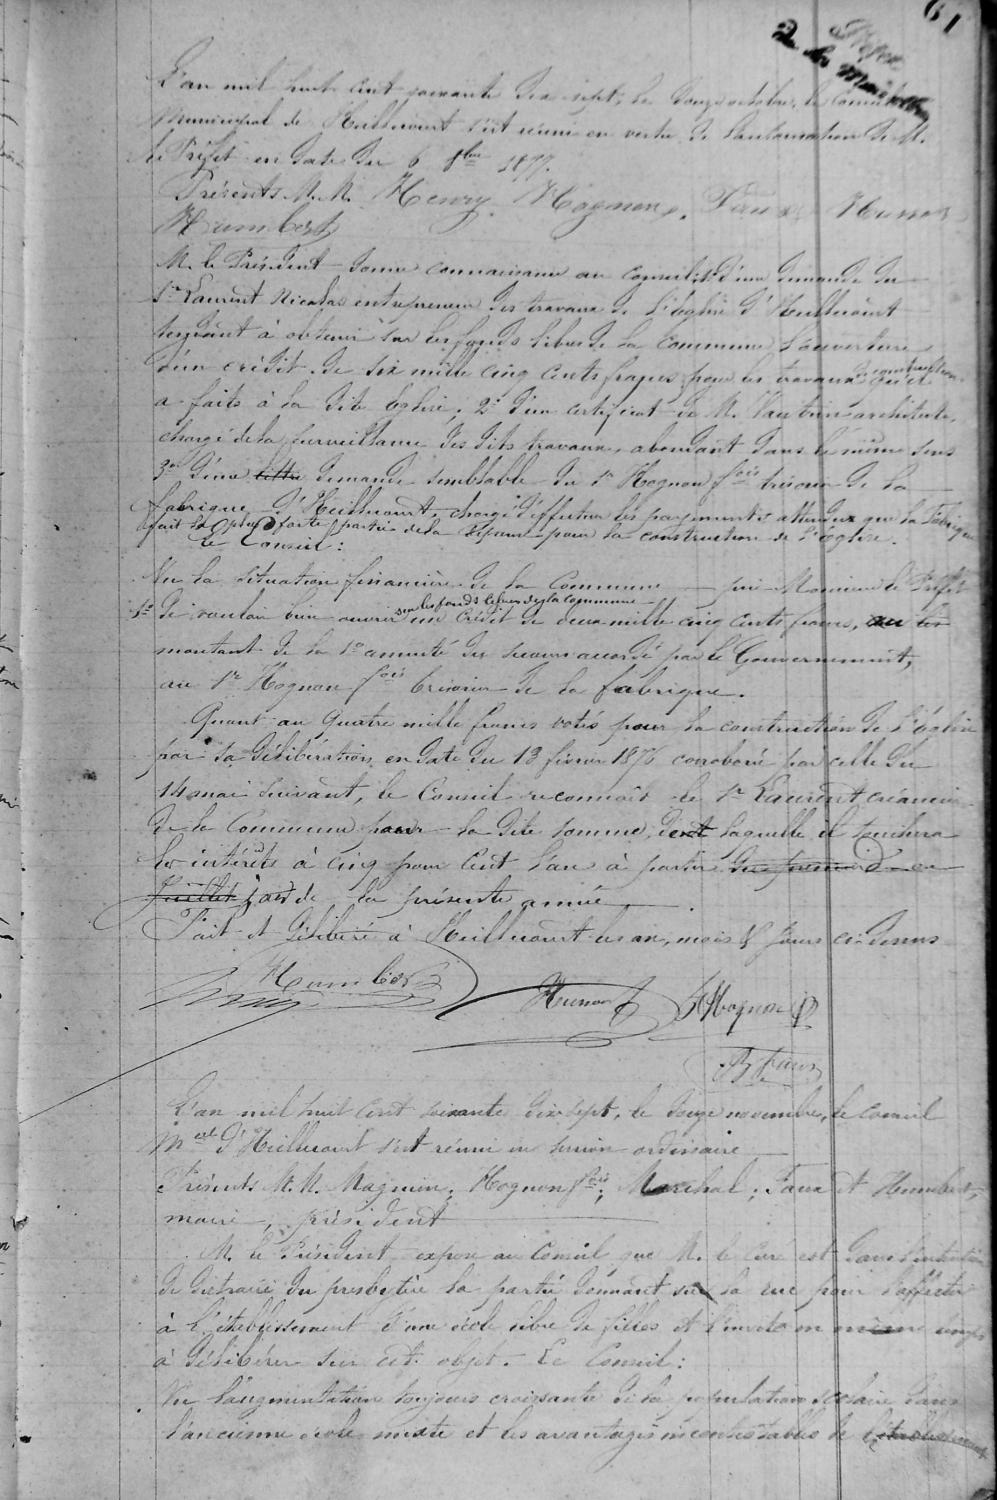 61
L'an mil huit cent soixante dix-sept, le douze octobre, le Conseil
Municipal de Heillecourt s'est réuni en vertu de l'autorisation de M.
le Préfet en date du 6 8bre 1877.
Présents M.M. Henry, Hognon, Faux, Husson
Humbert
M. le Président donne connaissance au Conseil 1° d'une demande du
Sr Laurent Nicolas entrepreneur des travaux de l'église d'Heillecourt
tendant à obtenir sur les fonds libres de la Commune l'ouverture
d'un crédit de six mille cinq cents francs pour les travaux de construction qu'il
a faits à la dite église; 2° d'un certificat de M. Vautrin architecte,
chargé de la surveillance des dits travaux, abondant dans le même sens
3° d'une lettre demande semblable du Sr Hognon fçois trésorier de la
fabrique d'Heillecourt, chargé d'effectuer les payements attendu que la Fabrique
fait la plus forte partie de la dépense pour la construction de l'église.
Le Conseil:
Vu la situation financière de la Commune prie Monsieur le Préfet
1° de vouloir bien ouvrir sur les fonds libres de la Commune un crédit de deux mille cinq cents francs,
montant de la 1e annuité du secours accordé par le Gouvernement,
au Sr Hognon fçois trésorier de la fabrique.
Quant au quatre mille francs votés pour la construction de l'église
par sa délibération en date du 13 février 1876 corroboré par celle du
14 mai suivant, le Conseil reconnaît le Sr Laurent créancier
de la Commune pour la dite somme, dont laquelle il touchera
les intérêts à cinq pour cent l'an à partir du premier
Juillet de la présente année.
Fait et délibéré à Heillecourt les an, mois & jours ci-dessus
Humbert
Henry Husson Hognon
Faux
L'an mil huit cent soixante dix sept, le douze novembre, le conseil
Mal d'Heillecourt s'est réuni en session ordinaire
Présents M.M. Magnien, Hognon fçois, Marchal, Faux et Humbert,
maire, président
M. le Président expose au Conseil que M. le Curé est dans l'intention
de distraire du presbytère la partie donnant sur la rue pour l'affecter
à l'établissement d'une école libre de filles et l'invite en même temps
à délibérer sur cet objet. Le Conseil:
Vu l'augmentation toujours croissante de la population scolaire dans
l'ancienne école mixte et les avantages incontestables de l'établissement